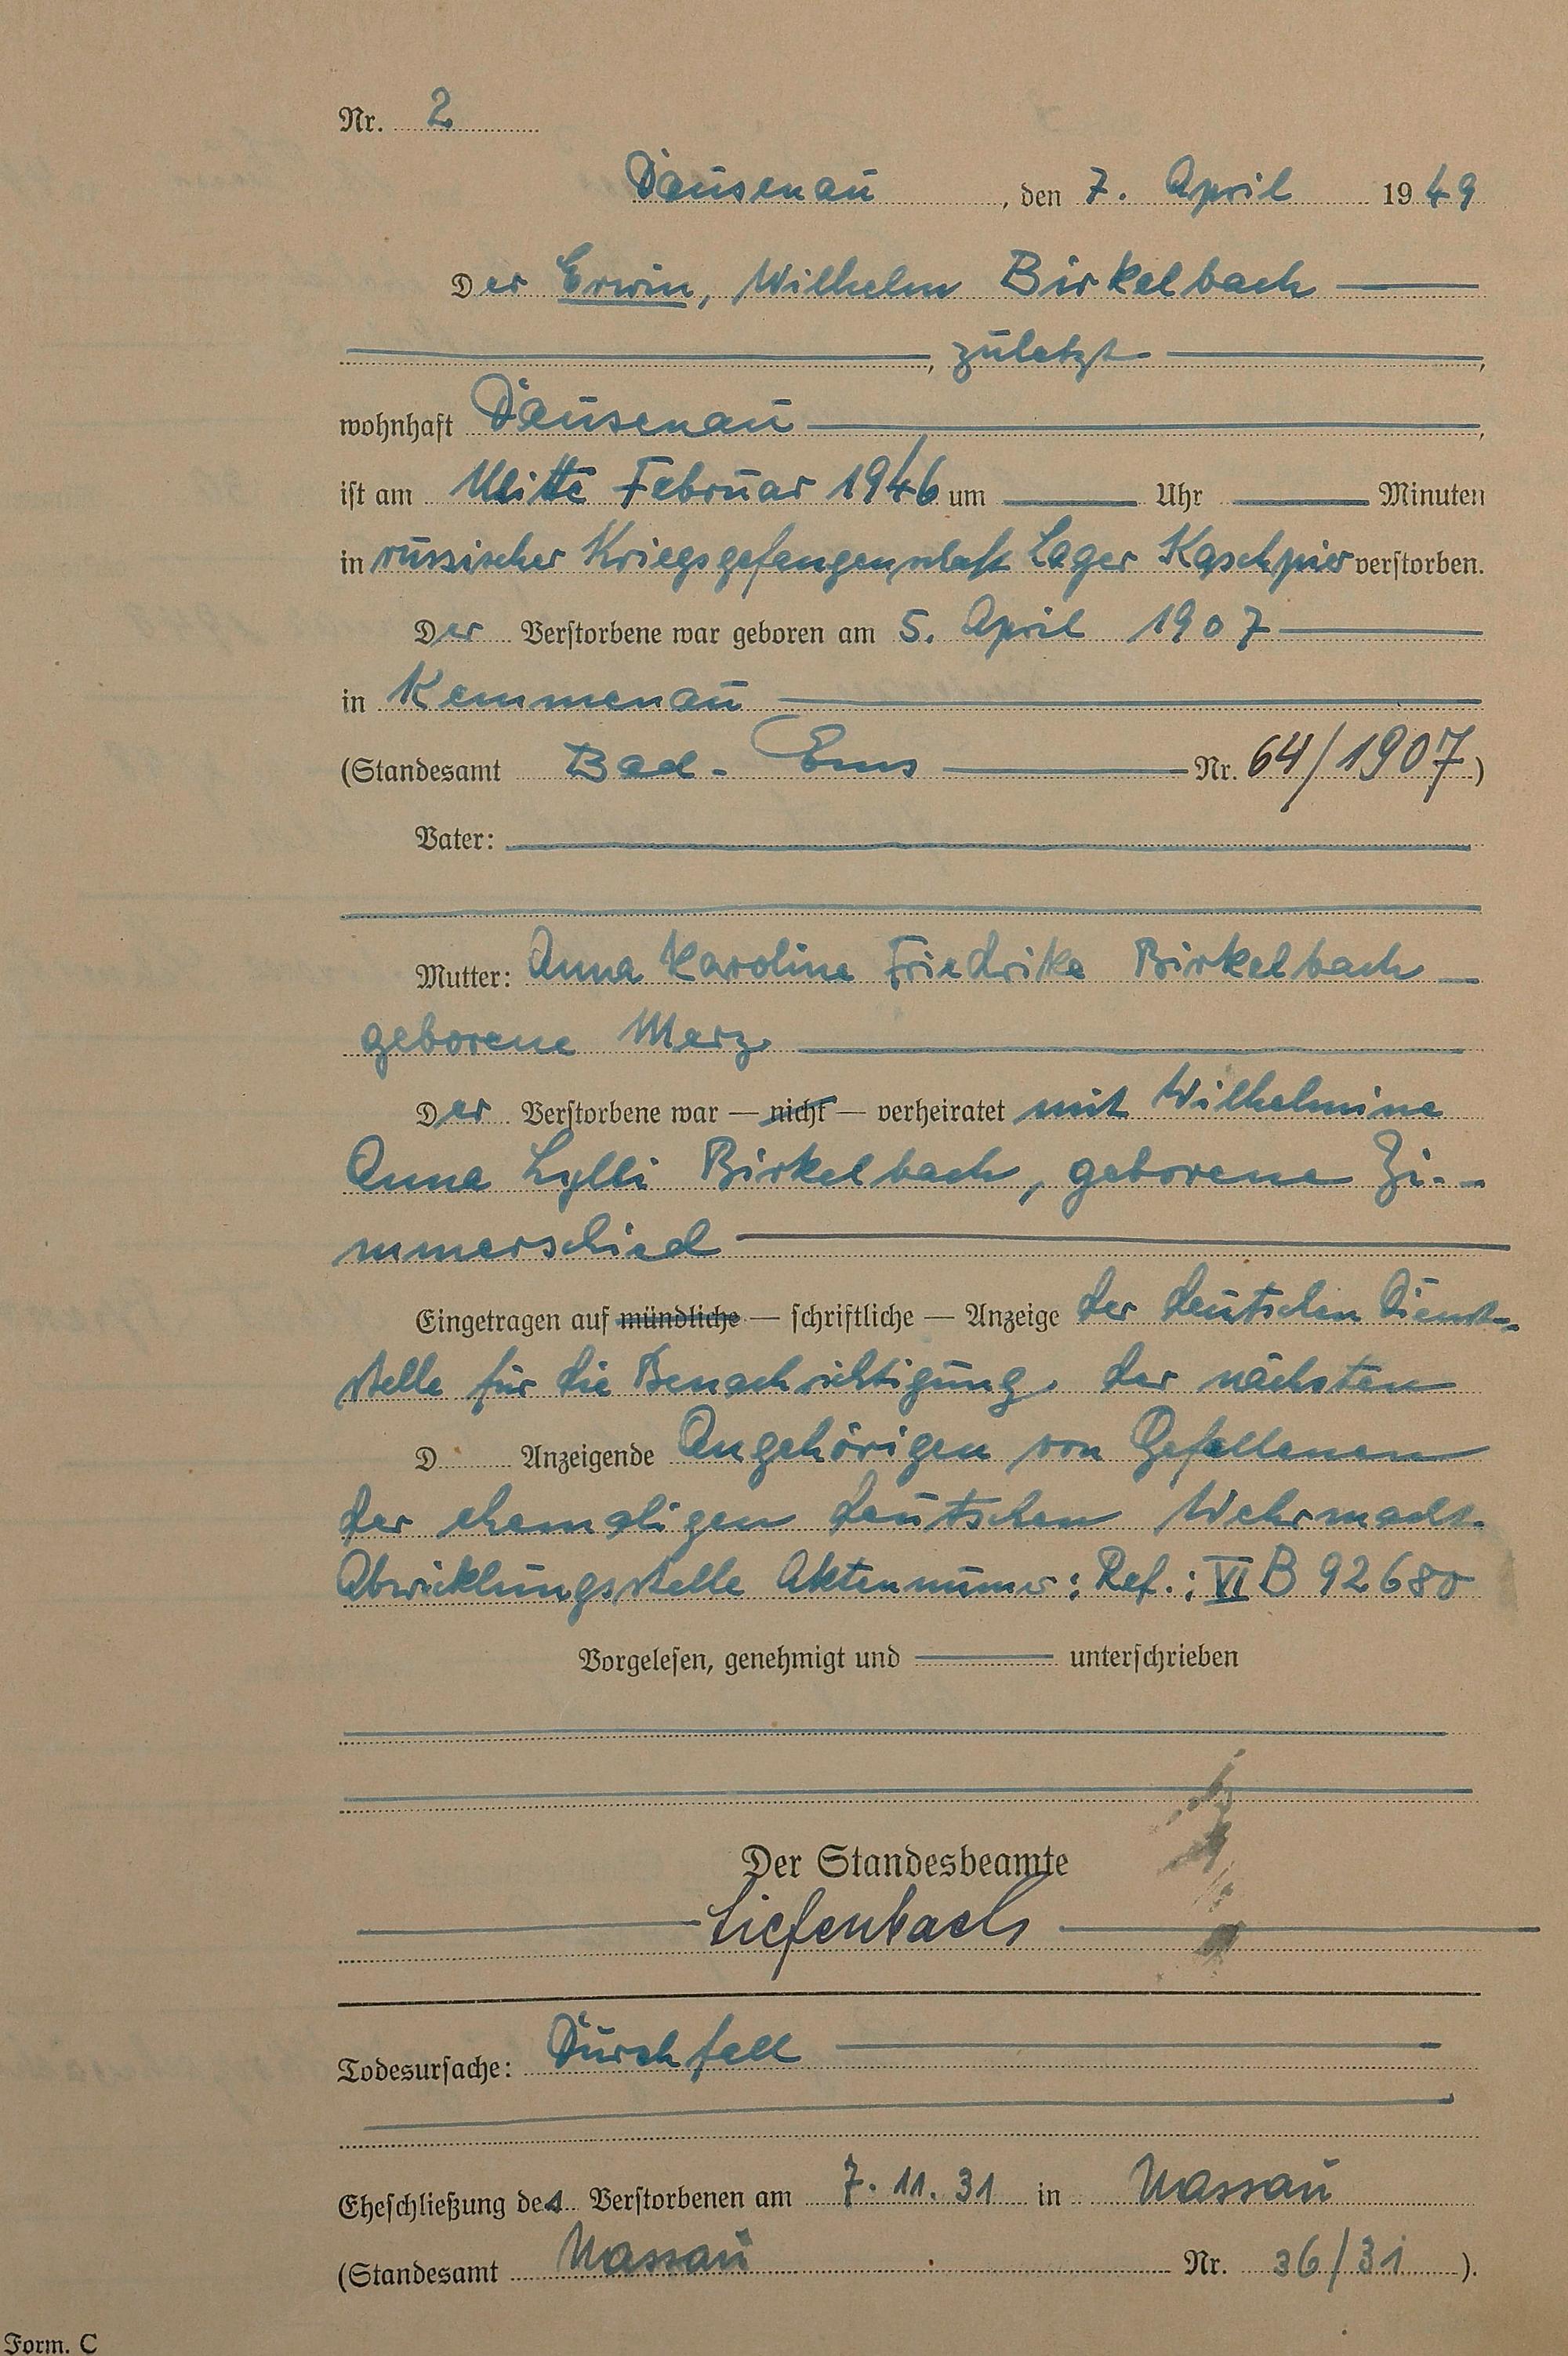 Nr. 2
Dausenau, den 7. April 1949
Der Erwin, Wilhelm Birkelbach
, zuletzt ,
wohnhaft Dausenau ,
ist am Mitte Februar 1946 um Uhr Minuten
in russischer Kriegsgefangenschaft Lager Kaschpier verstorben.
Der Verstorbene war geboren am 5. April 1907
in Kemmenau
(Standesamt Bad-Ems Nr. 64/1907)
Vater:
Mutter: Anna Karoline Friedrike Birkelbach
geborene Merz
Der Verstorbene war — nicht — verheiratet mit Wilhelmine
Anna Lylli Birkelbach, geborene Zi-
mmerschied
Eingetragen auf mündliche — schriftliche — Anzeige der deutschen Dienst-
stelle für die Benachrichtigung der nächsten
D Anzeigende Angehörigen von Gefallenen
der ehemaligen deutschen Wehrmacht.
Abwicklungsstelle Aktennumer: Ref.: VI B 92680
Vorgelesen, genehmigt und unterschrieben
Der Standesbeamte
Tiefenbach
Todesursache: Durchfall
Eheschließung des Verstorbenen am 7.11.31 in Nassau
(Standesamt Nassau Nr. 36/31).
Form. C